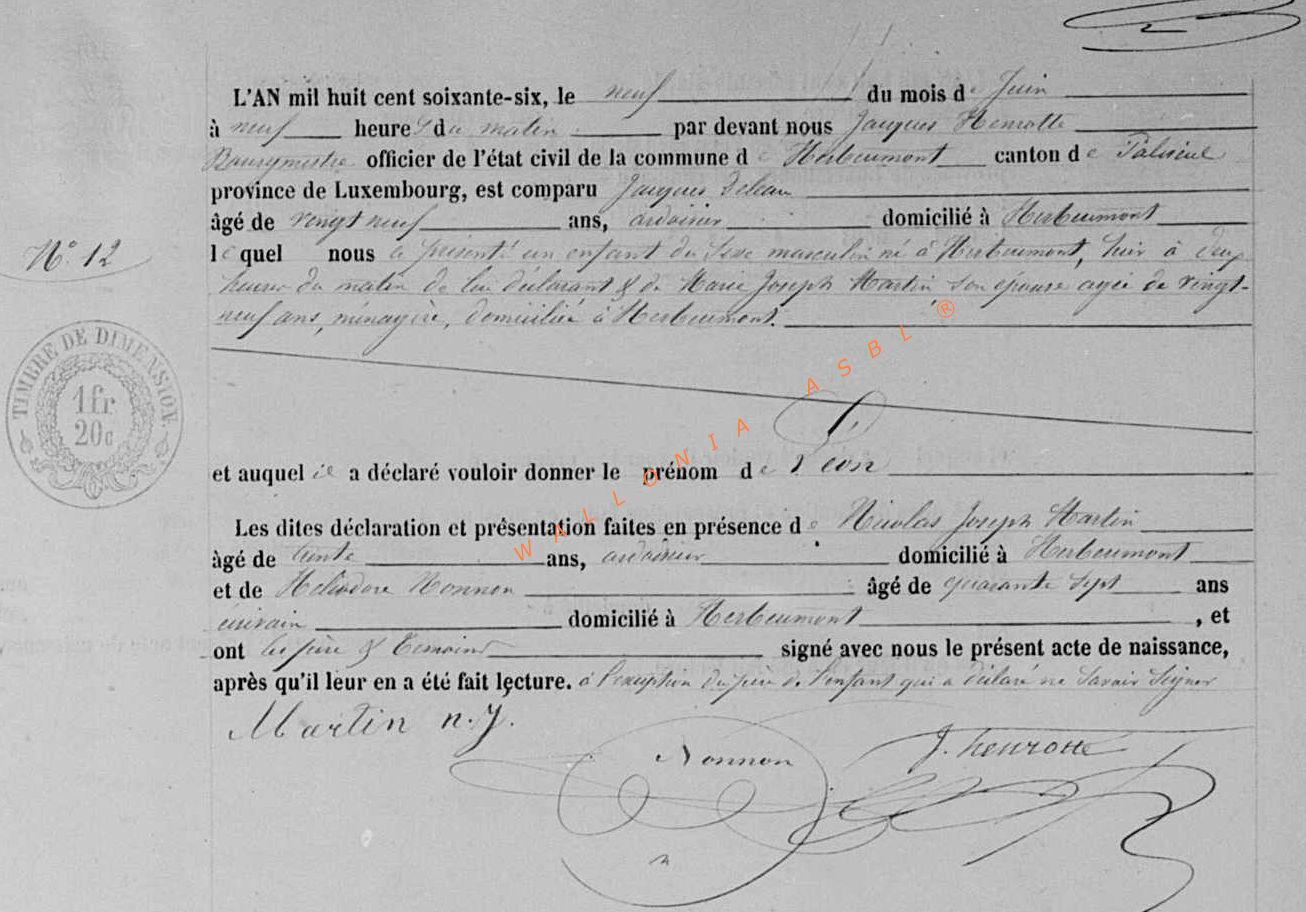 L'AN mil huit cent soixante-six, le neuf du mois de Juin
à neuf heures du matin par devant nous Jacques Henrotte
Bourgmestre officier de l'état civil de la commune de Herbeumont canton de Paliseul
province de Luxembourg, est comparu Jacques Deleau
âgé de vingt neuf ans, ardoisier domicilié à Herbeumont
N° 12
lequel nous a présenté un enfant du sexe masculin né à Herbeumont, hier à deux
heures du matin de lui déclarant & de Marie Joseph Martin son épouse agée de vingt-
neuf ans, ménagère, domiciliée à Herbeumont.
TIMBRE DE DIMENSION
1fr
20c
WALLONIA ASBL ®
et auquel il a déclaré vouloir donner le prénom de Léon
Les dites déclaration et présentation faites en présence de Nicolas Joseph Martin
âgé de trente ans, ardoisier domicilié à Herbeumont
et de Héliodore Nonnon âgé de quarante sept ans
écrivain domicilié à Herbeumont, et
ont les père & témoins signé avec nous le présent acte de naissance,
après qu'il leur en a été fait lecture. à l'exception du père de l'enfant qui a déclaré ne savoir signer
Martin n.J.
Nonnon
J. henrotte